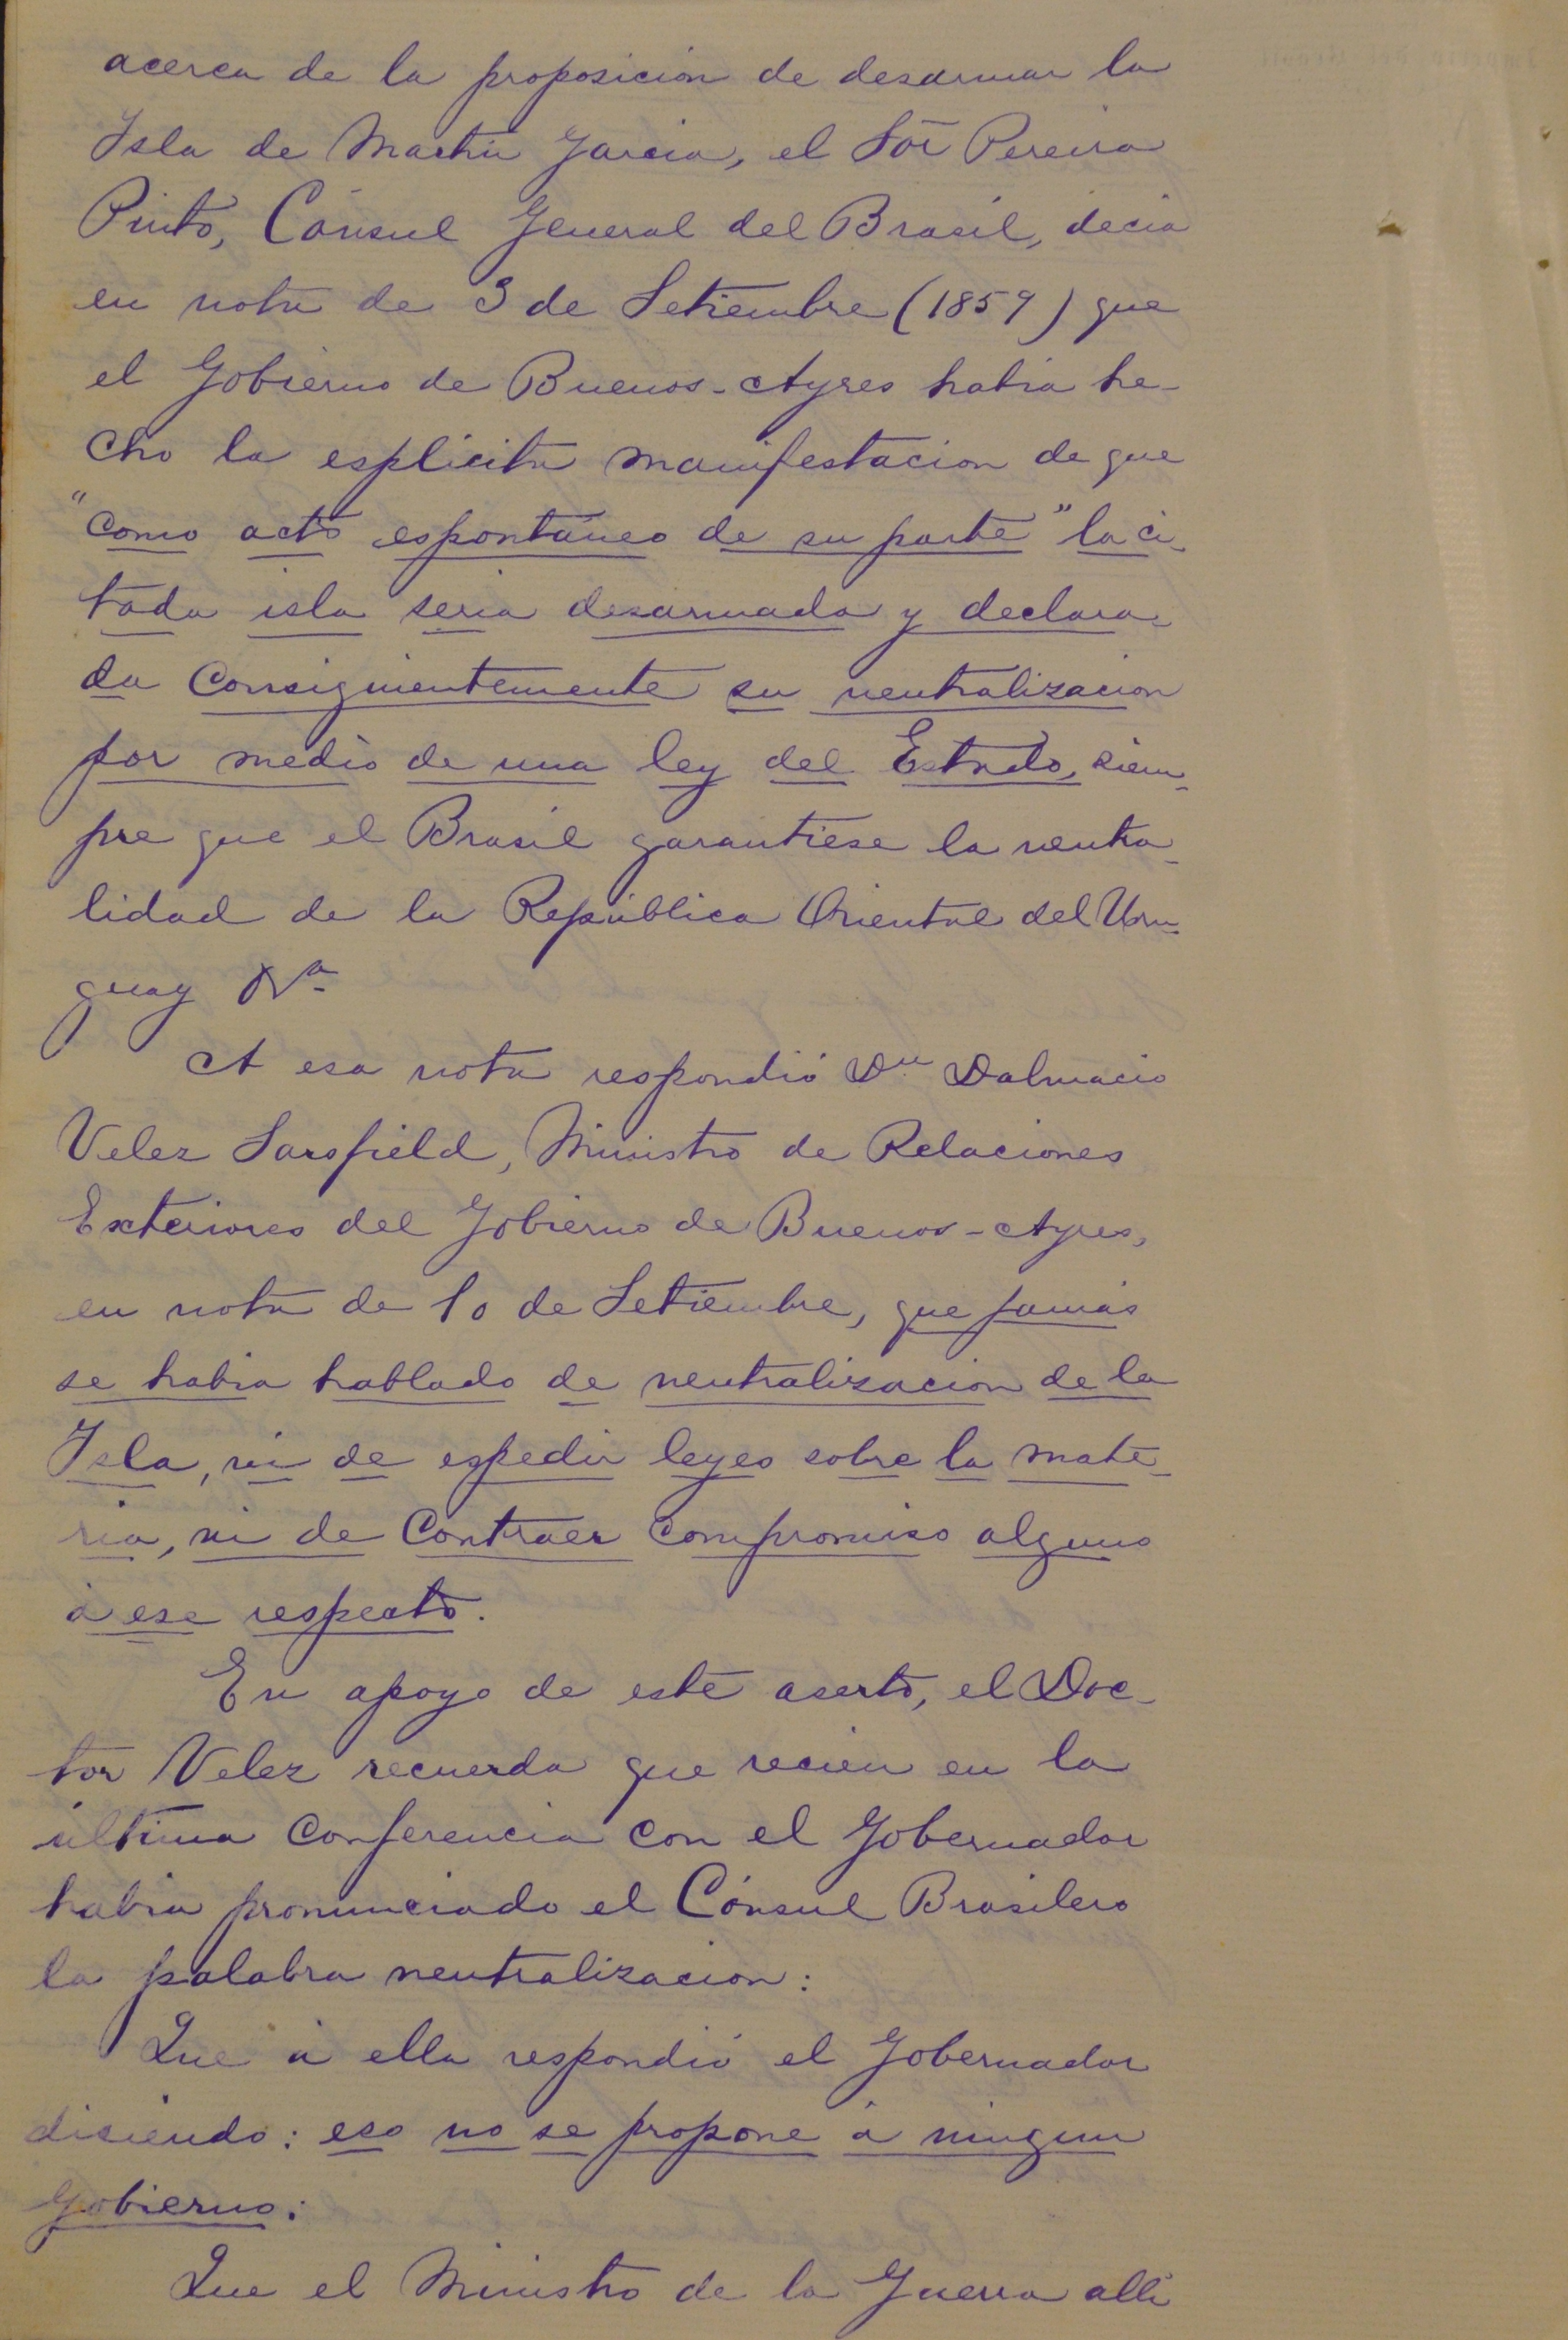 acerca de la proposicion de desarmar la
Isla de Martin Garcia, el Sōr Pereira
Pinto, Cónsul General del Brasil, decia
en nota de 3 de Setiembre (1859) que
el Gobierno de Buenos-Ayres habia he-
cho la esplicita manifestacion de que
"como acto espontáneo de su parte" la ci-
tada isla seria desarmada y declara-
da consiguientemente su neutralizacion
por medio de una ley del Estado, siem-
pre que el Brasil garantiese la neutra-
lidad de la República Oriental del Uru-
guay &ª
A esa nota respondió Dn Dalmacio
Velez Sarsfield, Ministro de Relaciones
Exteriores del Gobierno de Buenos-Ayres,
en nota de 10 de Setiembre, que jamás
se habia hablado de neutralizacion de la
Isla, ni de espedir leyes sobre la mate-
ria, ni de contraer compromiso alguno
á ese respecto.
En apoyo de este aserto, el Doc-
tor Velez recuerda que recien en la
última conferencia con el Gobernador
habia pronunciado el Cónsul Brasilero
la palabra neutralizacion:
Que á ella respondió el Gobernador
diciendo: eso no se propone á ningun
Gobierno:
Que el Ministro de la Guerra alli